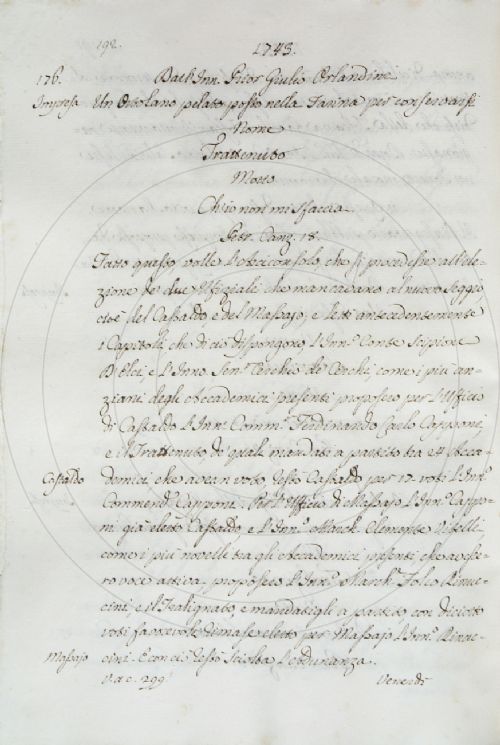 192.
1743.
176. Dall' Inn. Prior Giulio Orlandini
Impresa Un Ortolano pelato posto nella Farina per conservarsi
Nome
Trattenuto
Motto
Ch'io non mi sfaccia
Petr. Canz. 18.
Fatto questo volle l'Arciconsolo, che si procedesse all'ele-
zione de due Ufiziali che mancavano al nuovo seggio,
cioè del Castaldo, e del Massajo, e letti antecedentemente
i Capitoli, che di ciò dispongono, l'Inn.º Conte Scipione
D'Elci, e l'Inno. Sen.r Cerchio de' Cerchi, come i più an-
ziani degli Accademici presenti proposero per l'Uffizio
di Castaldo l'Inn.º Comm.r Ferdinando Carlo Capponi,
e il Trattenuto de' quali mandati a partito tra 24 Acca-
Castaldo demici, che avean voto, restò Castaldo per 17. voti l'Inn.º
Commend.r Capponi. Per l'Uffizio di Massajo l'Inn.º Cappo-
ni già eletto Castaldo, e l'Inn.º March. Clemente Vitelli
come i più novelli tra gli Accademici presenti, che avesse-
ro voce attiva, proposero l'Inn.º March. Folco Rinuc-
cini, e il Tralignato, e mandatigli a partito, con diciotto
voti favorevoli rimase eletto per Massajo l'Inn.º Rinuc-
Massajo cini. E con ciò restò sciolta l'adunanza.
V. a c. 299.
Venerdì